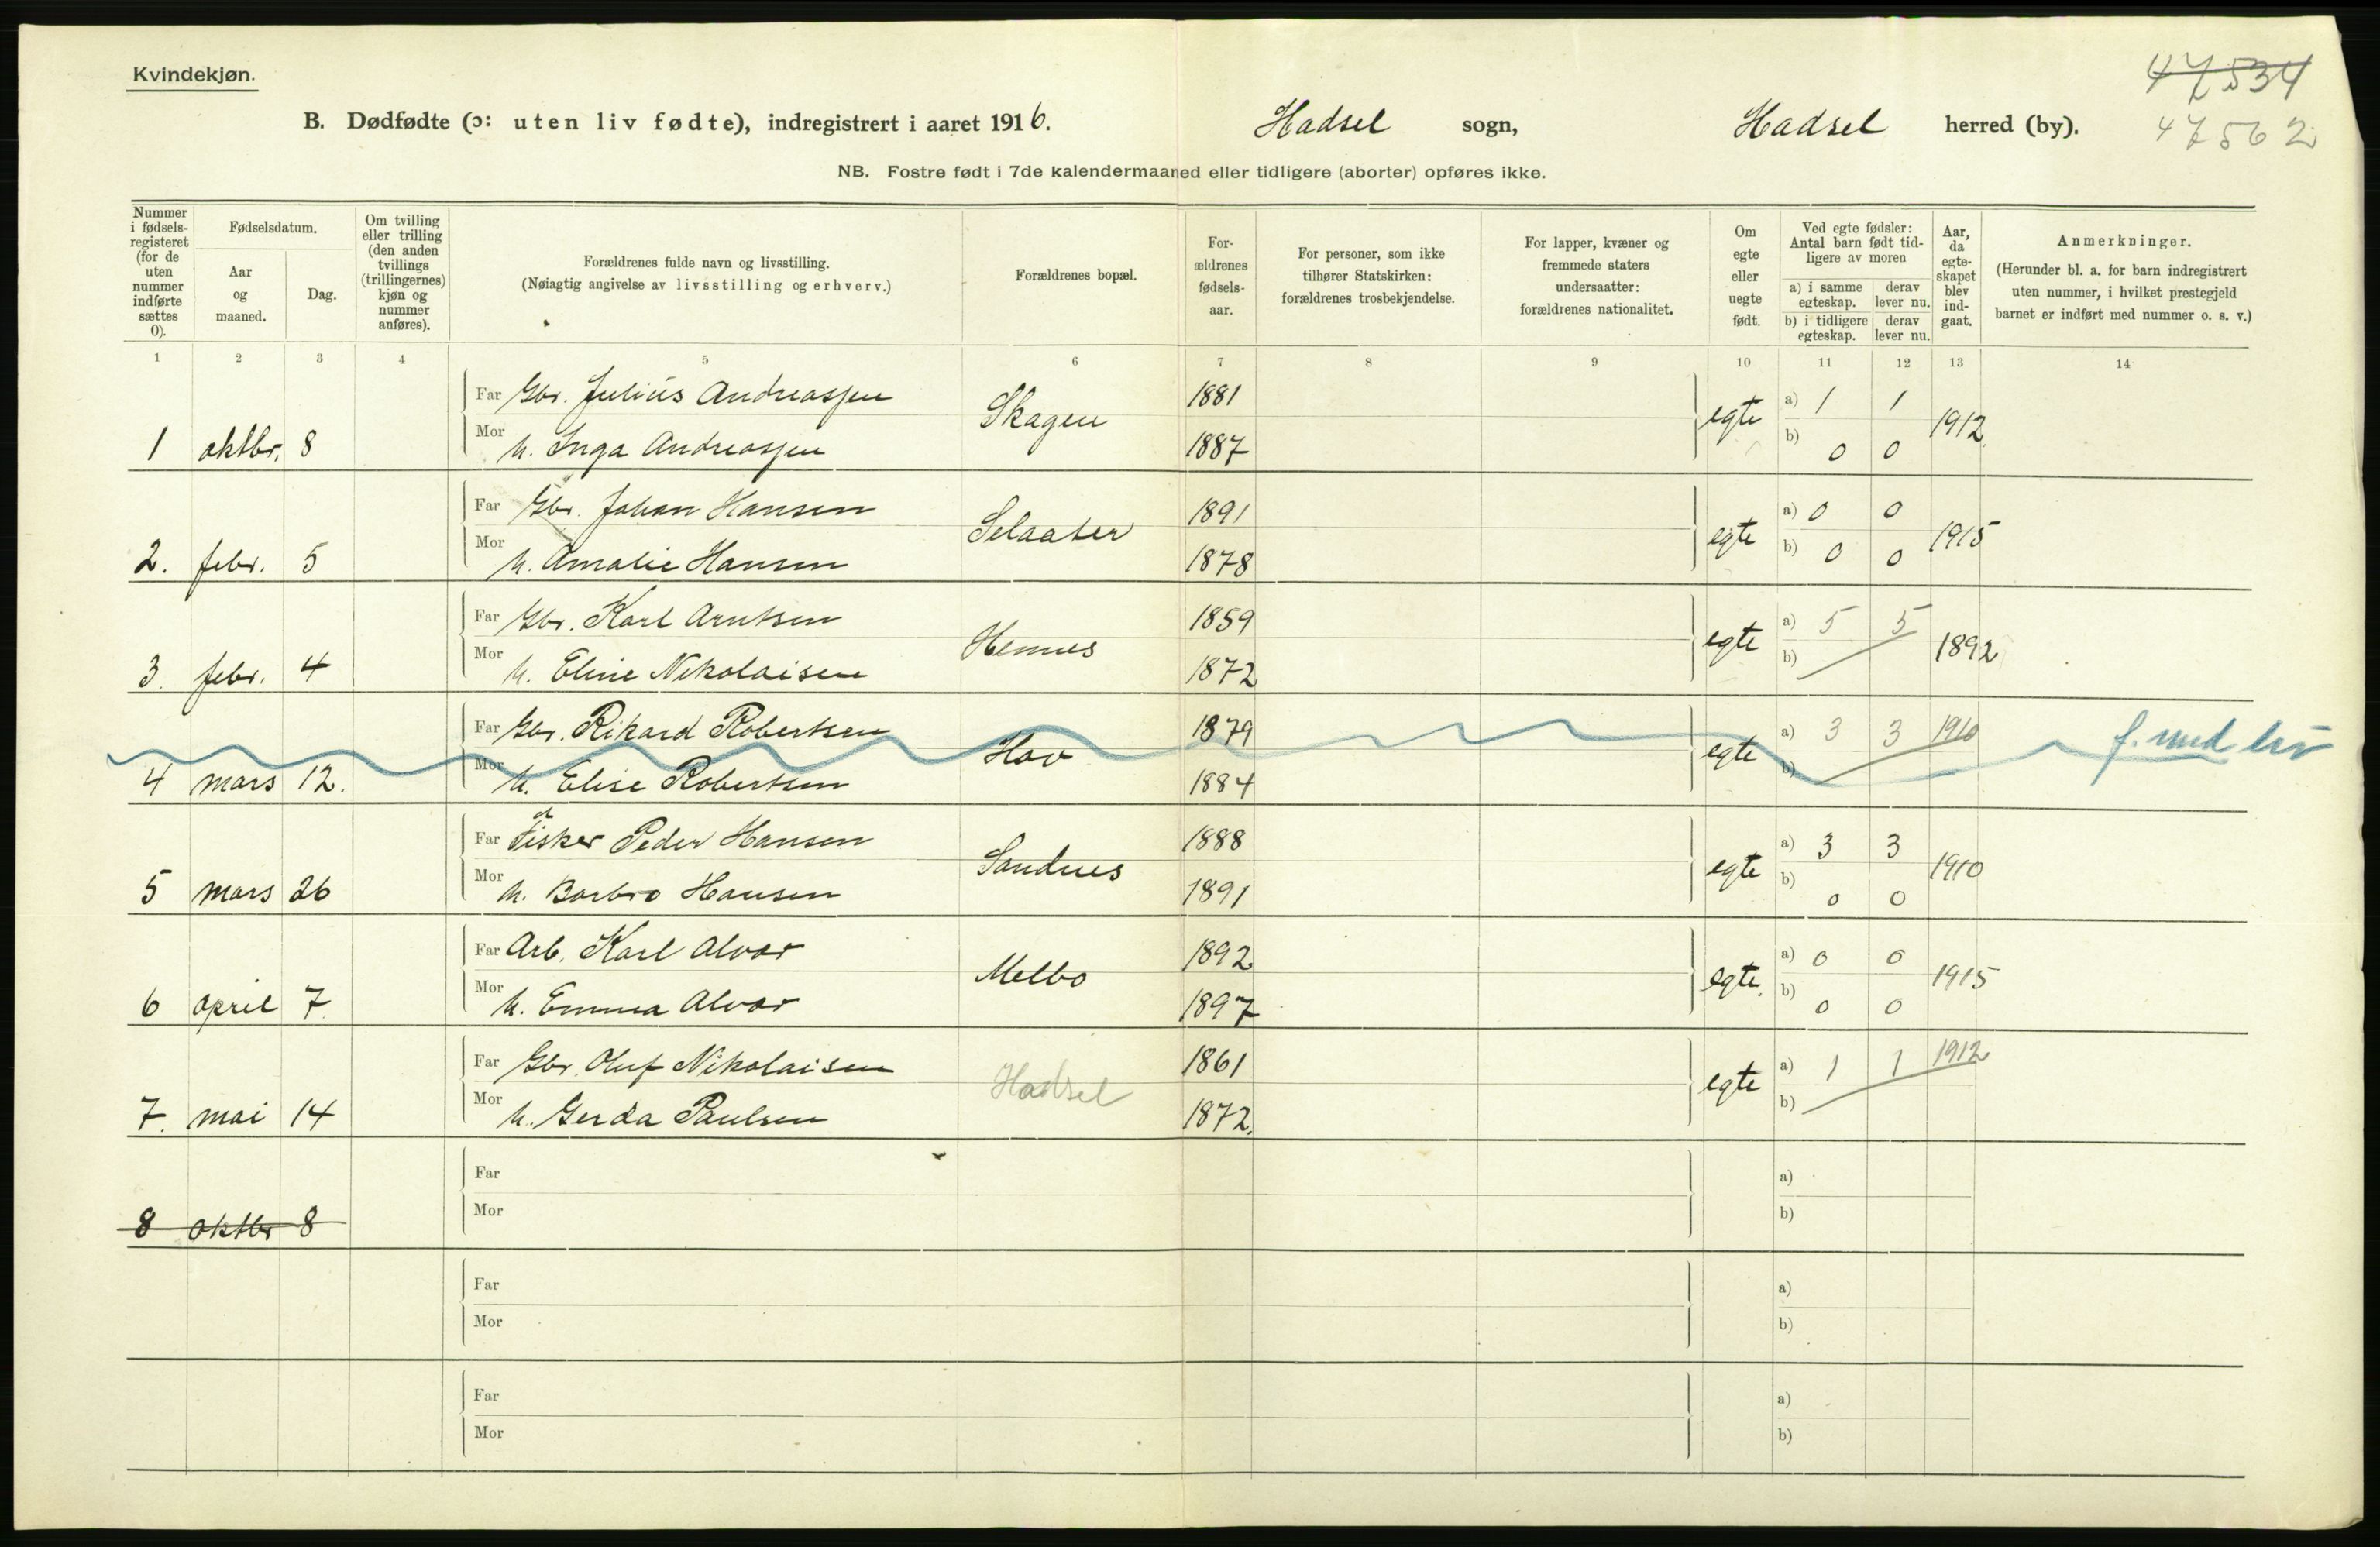 Kvindekjøn.
47534
B. Dødfødte (ɔ: uten liv fødte), indregistrert i aaret 1916. Hadsel sogn, Hadsel herred (by).
47562
NB. Fostre født i 7de kalendermaaned eller tidligere (aborter) opføres ikke.
Nummer i fødsels-registeret (for de uten nummer indførte sættes 0).
Fødselsdatum.
Aar og maaned.
Dag.
Om tvilling eller trilling (den anden tvillings (trillingernes) kjøn og nummer anføres).
Forældrenes fulde navn og livsstilling.
(Nøiagtig angivelse av livsstilling og erhverv.)
Forældrenes bopæl.
For-ældrenes fødsels-aar.
For personer, som ikke tilhører Statskirken: forældrenes trosbekjendelse.
For lapper, kvæner og fremmede staters undersaatter: forældrenes nationalitet.
Om egte eller uegte født.
Ved egte fødsler: Antal barn født tid-ligere av moren
a) i samme egteskap. derav lever nu.
b) i tidligere egteskap. derav lever nu.
Aar, da egte-skapet blev ind-gaat.
Anmerkninger.
(Herunder bl. a. for barn indregistrert uten nummer, i hvilket prestegjeld barnet er indført med nummer o. s. v.)
1 2 3 4 5 6 7 8 9 10 11 12 13 14
Far Gbr. Julius Andreassen 1881 a) 1 1
1 oktbr. 8 Skagen egte 1912.
Mor h. Inga Andreassen 1887 b) 0 0
Far Gbr. Johan Hansen 1891 a) 0 0
2. febr. 5 Selaater egte 1915
Mor h. Amalie Hansen 1878 b) 0 0
Far Gbr. Karl Arntsen 1859 a) 5 5
3. febr. 4 Hennes egte 1892
Mor h. Eline Nikolaisen 1872 b)
Far Gbr. Rikard Robertsen 1879 a) 3 3 1910
4 mars 12. Hov egte f. med liv
Mor h. Elise Robertsen 1884 b)
Far Fisker Peder Hansen 1888 a) 3 3
5 mars 26 Sandnes egte 1910
Mor h. Borbro Hansen 1891 b) 0 0
Far Arb. Karl Alvær 1892 a) 0 0
6 april 7. Melbo egte. 1915
Mor h. Emma Alvær 1897 b) 0 0
Far Gbr. Oluf Nikolaisen 1861 a) 1 1 1912
7. mai 14 Hadsel egte
Mor h. Gerda Paulsen 1872. b)
Far a)
Mor b)
8 oktbr 8
Far a)
Mor b)
Far a)
Mor b)